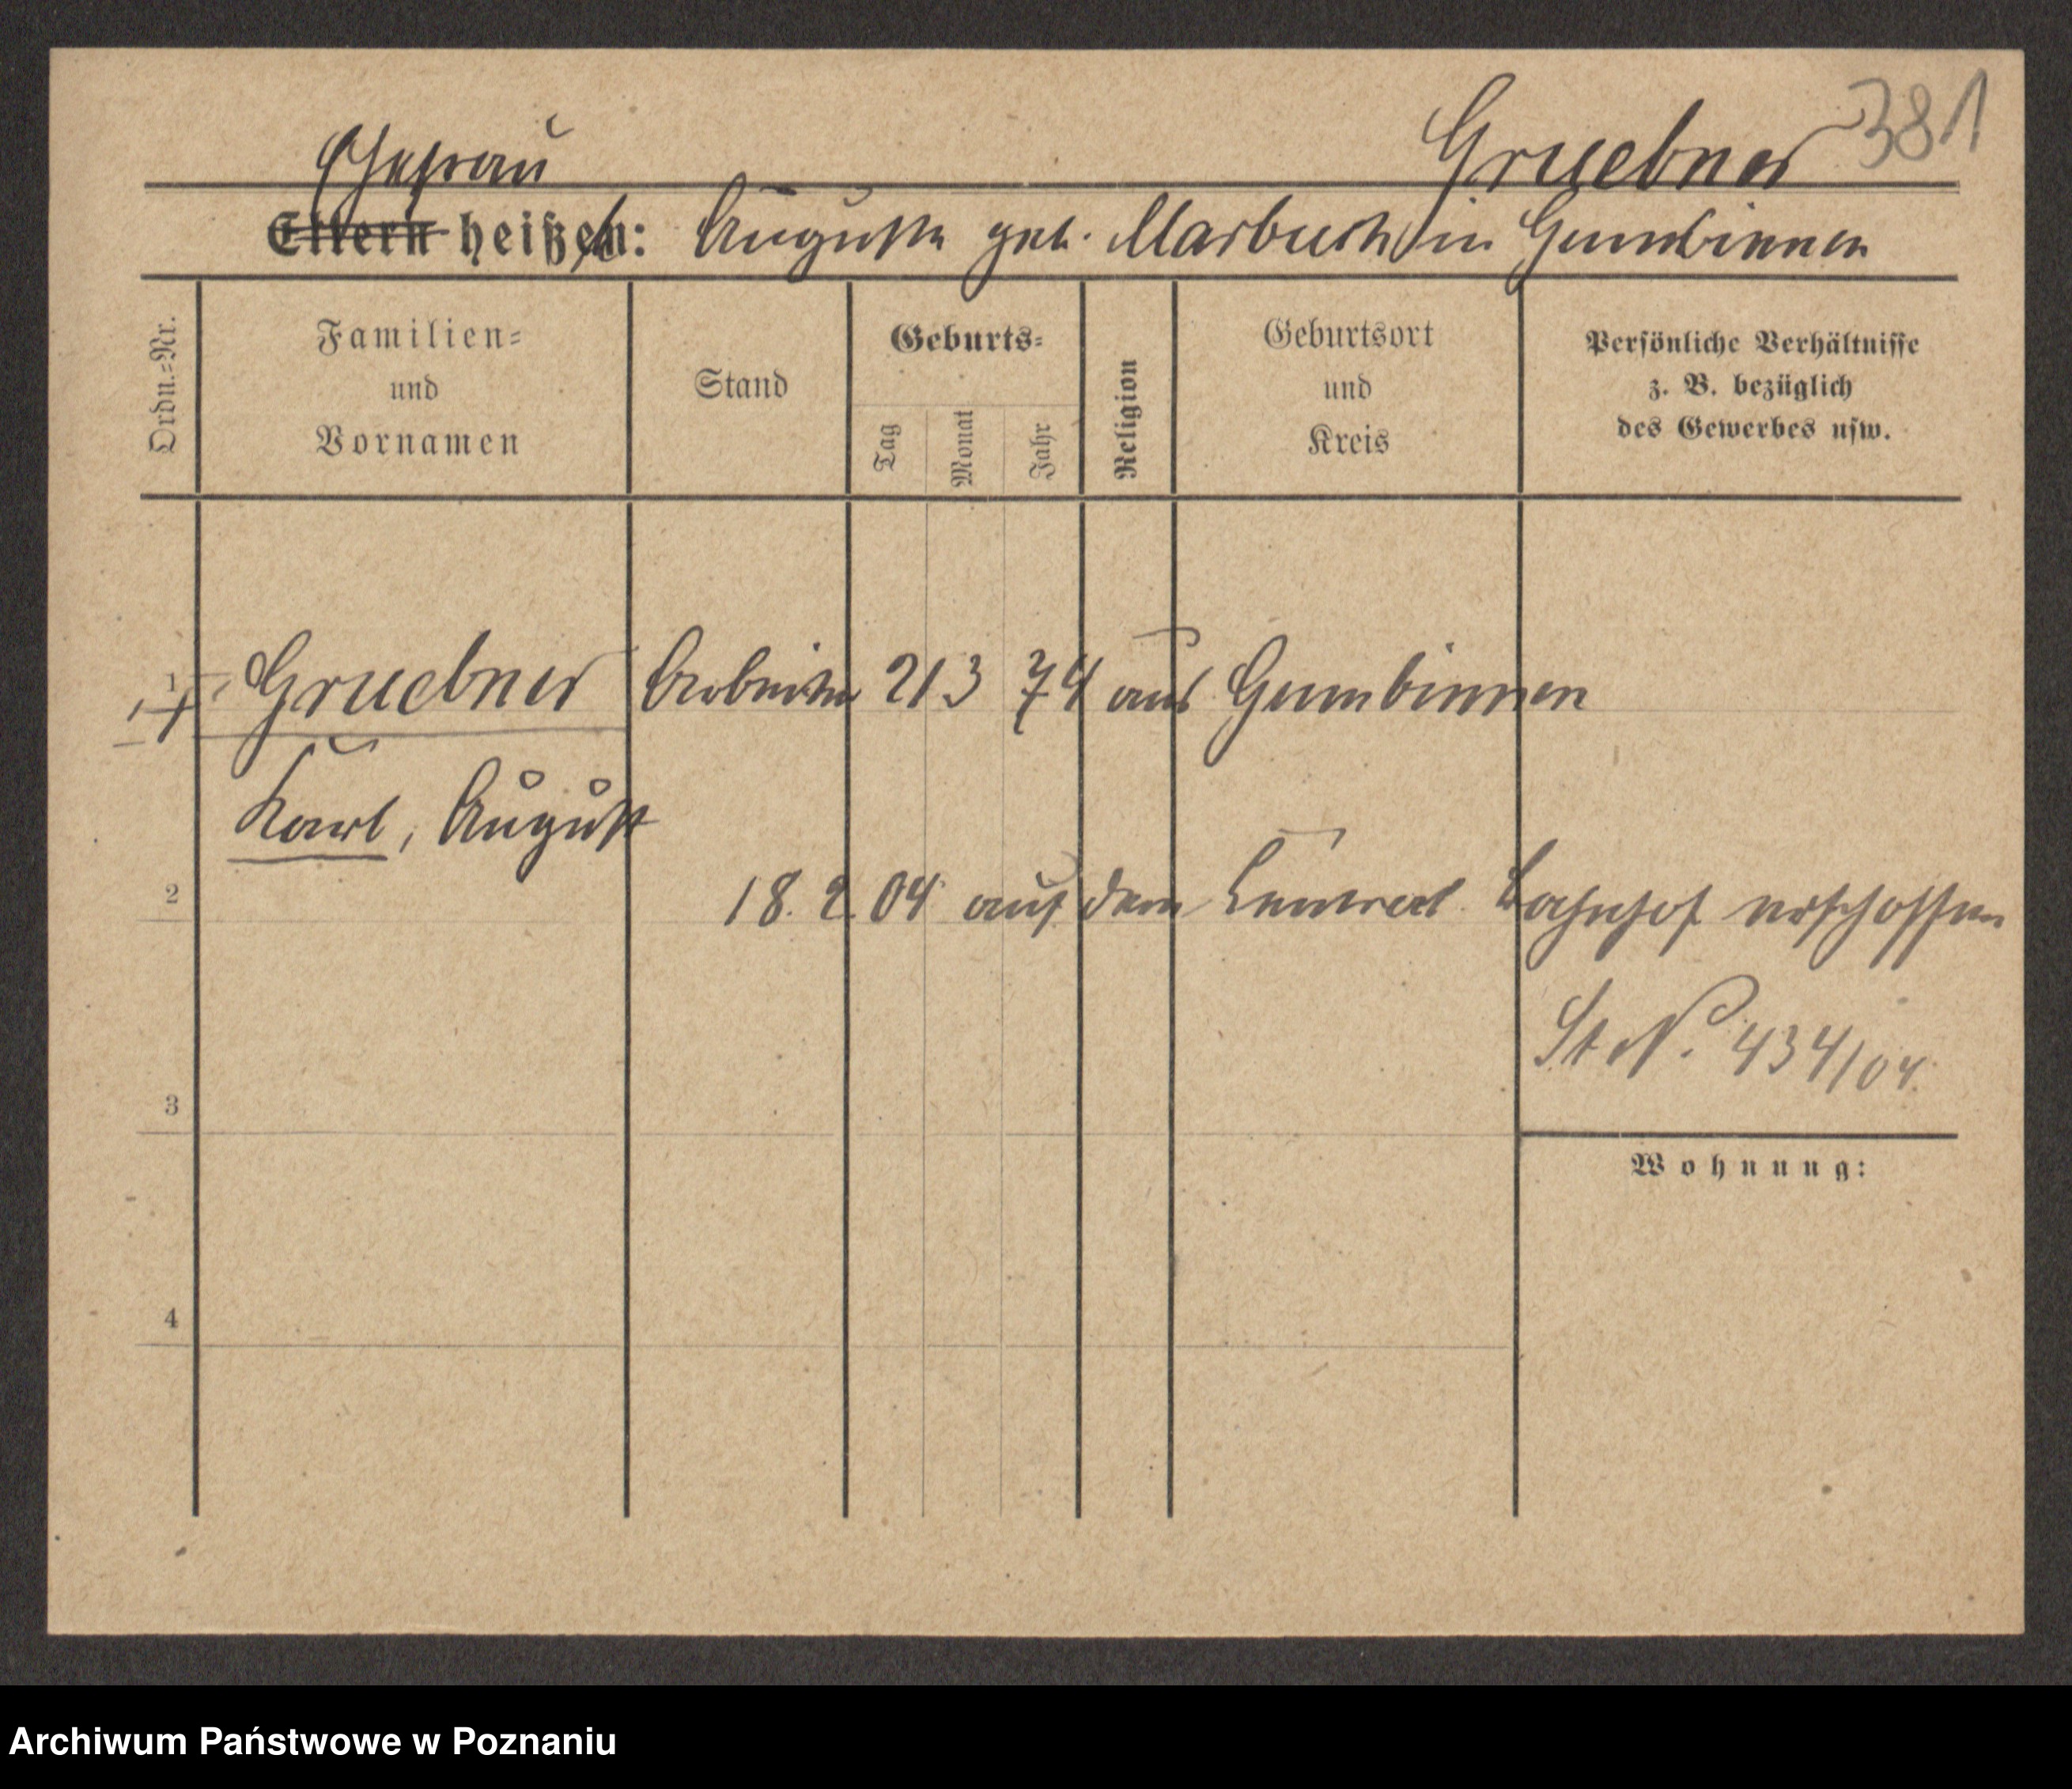 Gruebner 381
Ehefrau
Eltern heißen: Auguste geb. Marbuch in Gumbinnen
Ordn.=Nr.
Familien=
und
Vornamen
Stand
Geburts=
Tag
Monat
Jahr
Religion
Geburtsort
und
Kreis
Persönliche Verhältnisse
z. B. bezüglich
des Gewerbes usw.
1 Gruebner Arbeiter 21 3 74 aus Gumbinnen
Karl, August
2 18. 2. 04 auf dem Central Bahnhof erschossen
St N. 434/04
3
Wohnung:
4
Archiwum Państwowe w Poznaniu